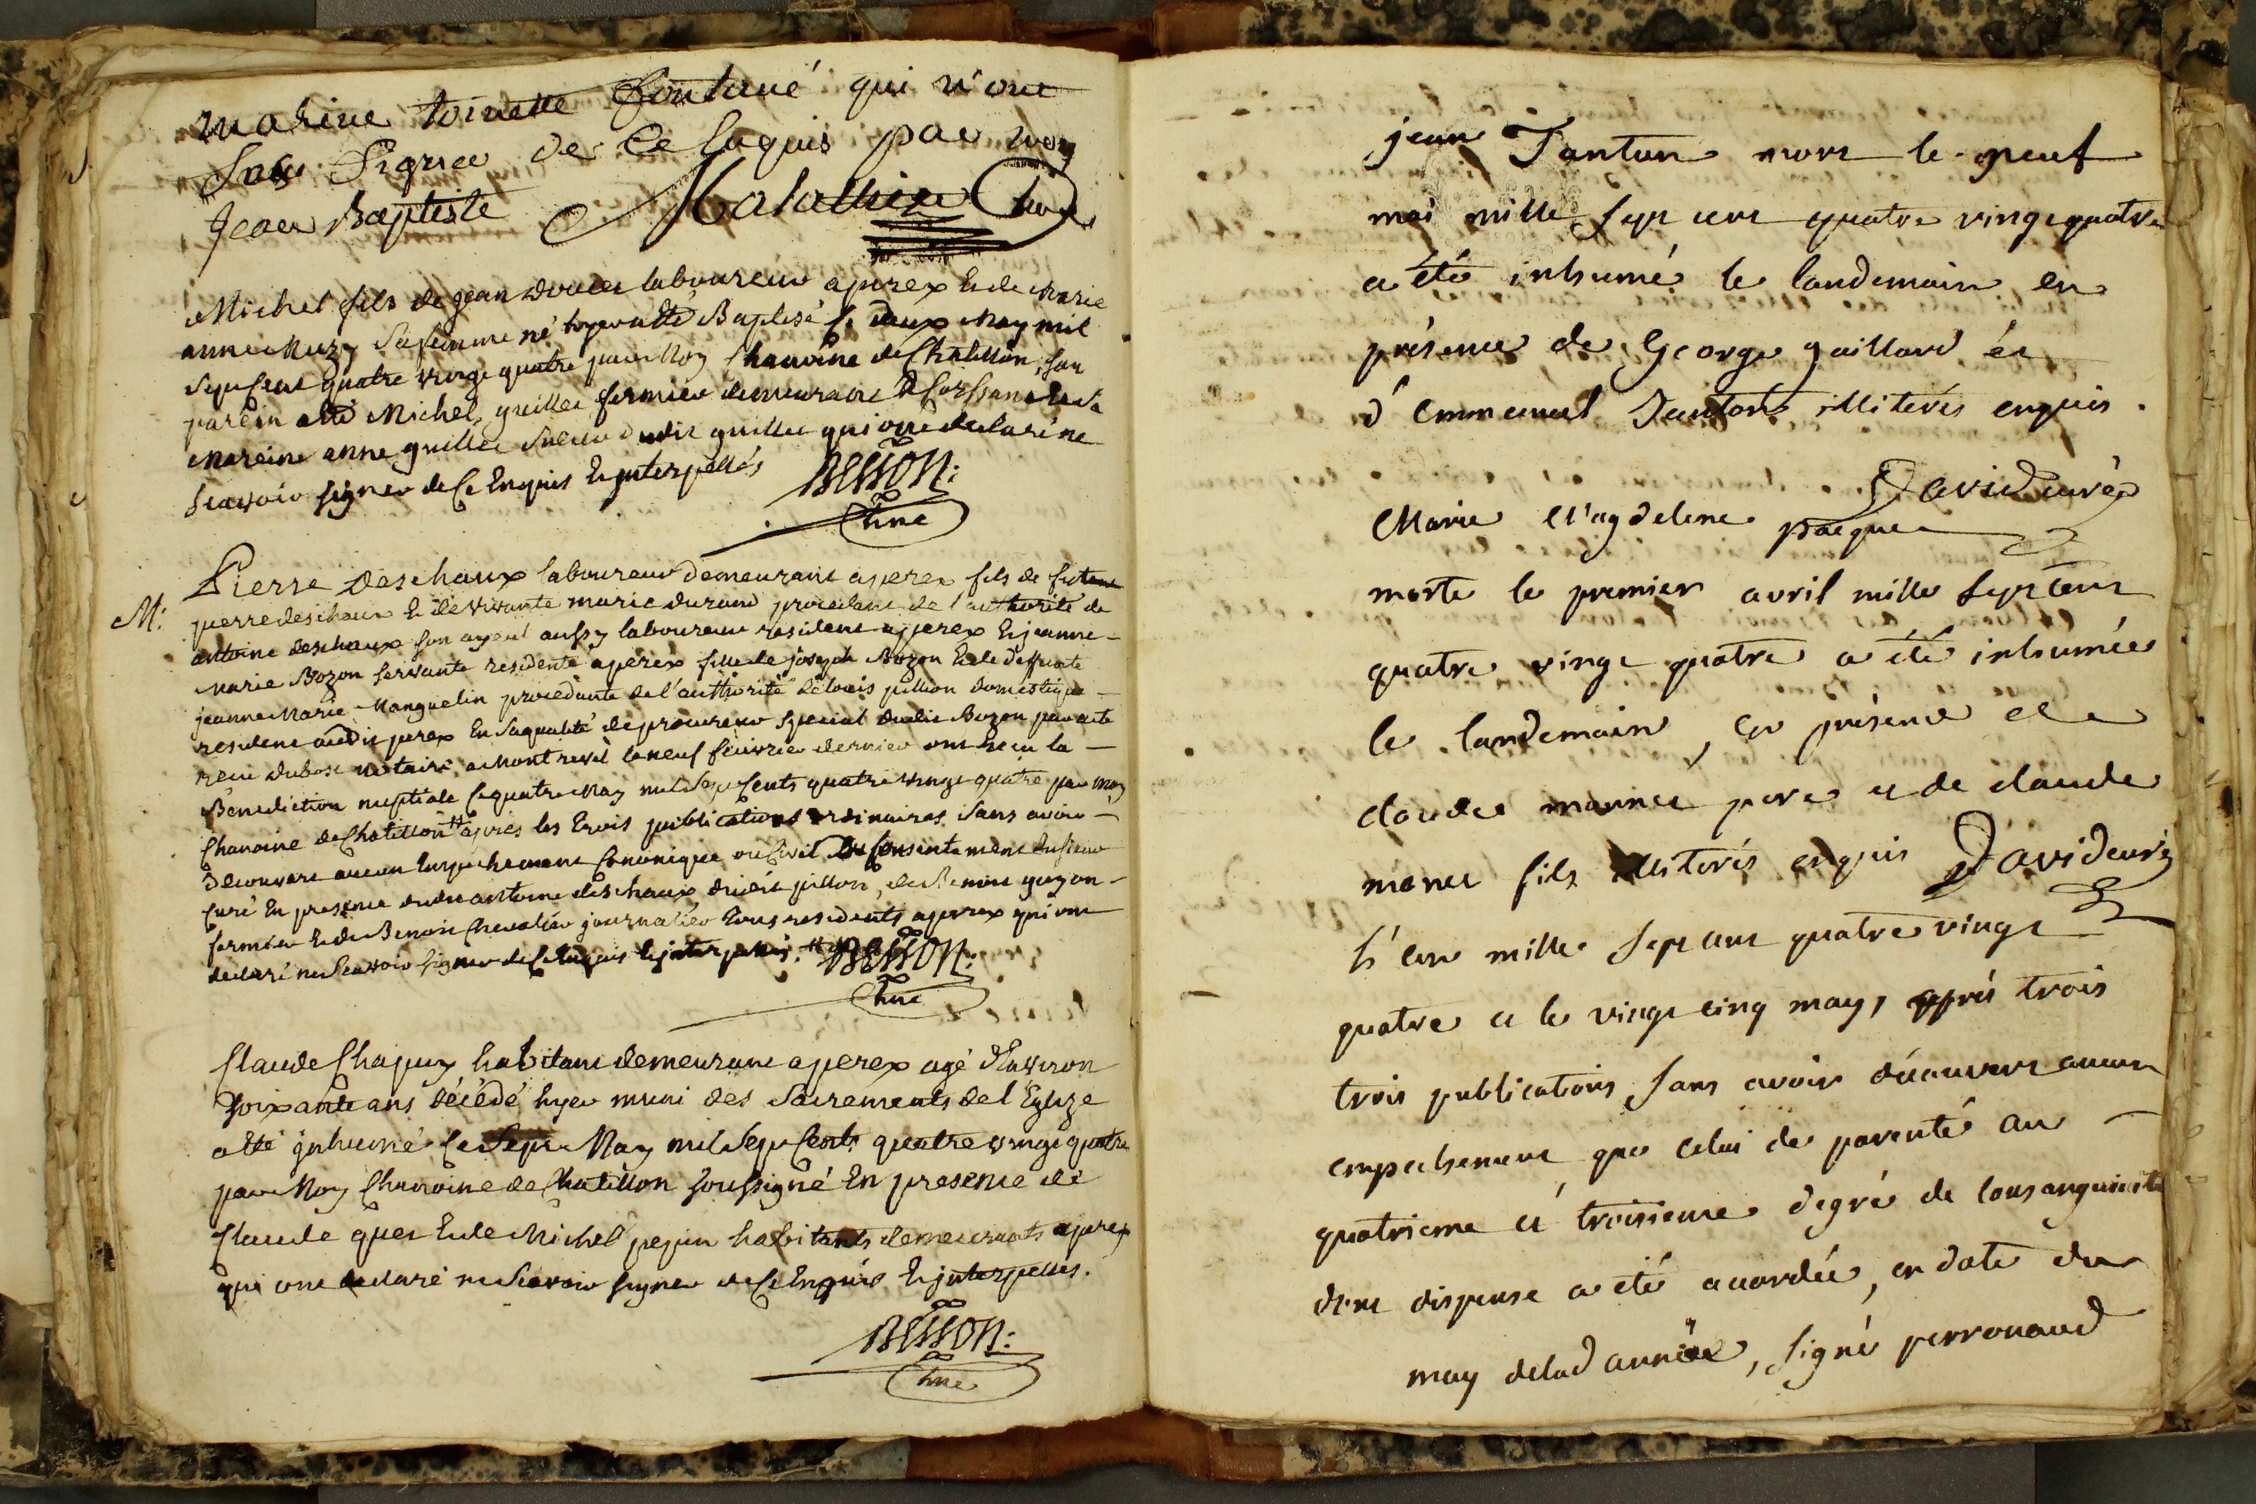 marine toinette fontané qui n'ont
Scu Signer de Ce Enquis par moy
Jean Baptiste Malathier Chne
Michel fils de jean doucer laboureur aperex Et de Marie
anne Muzy Sa femme né hyer a Eté Baptisé Ce deux May mil
Sept Cent quatre vingt quatre par Moy Chanoine de Chatillon, son
parein a Eté Michel guillet fermier demeurant a foissiat Et Sa
Mareine anne guillet Soeur dudit guillet qui ont declaré ne
Scavoir signer de Ce Enquis Et jnterpellés
Besson:
Chne
M:
Pierre deschaux laboureur demeurant aperex fils de feu
pierre deschaux Et de vivante marie durand procedant de l'authorité de
antoine deschaux son ayeul aussy laboureur resident aperex Et jeanne
Marie Bozon servante residente aperex fille de joseph Bozon Et de deffunte
jeanne Marie Manguelin procedante de l'authorité de louis pillion domestique
resident audit perex En Sa qualité de procureur Special dudit Bozon par acte
recu dubost notaire a Montrevel le neuf feuvrier dernier ont recu la
Benediction nuptiale Ce quatre May mil Sept Cents quatre vingt quatre par moy
Chanoine de Chatillon apres les trois publications ordinaires Sans avoir
decouvert aucun Empechement Canonique ou Civil Du Consentement du sieur
Curé En presence dudit antoine deschaux dudit pillon, de Benoit guyon
fermier Et de Benoit Chevalier journalier tous residents aperex qui ont
declaré ne Scavoir signer de Ce Enquis Et jnterpellés.
Besson:
Chne
Claude Chapuy habitant demeurant aperex agé d'Environ
Soixante ans décédé hyer muni des Sacrements de l'Eglize
a Eté jnhumé Ce Sept May mil Sept Cents quatre vingt quatre
par Moy Chanoine de Chatillon soussigné En presence de
Claude guet Et de Michel pepin habitants demeurants aperex
qui ont declaré ne Scavoir signer de Ce Enquis Et jnterpellés.
Besson:
Chne
jean Tanton mort le neuf
mai mille sept cent quatre vingt quatre
a été inhumé le landemain en
présence de George gaillard et
d'emmanuel Tanton illiterés enquis.
David curé
Marie Magdelene pacque
morte le premier avril mille sept cent
quatre vingt quatre a été inhumée
le landemain, en présence de
claude manner pere et de claude
maner fils illiterés enquis David curé
L'an mille sept cent quatre vingt
quatre et le vingt cinq may, après trois
trois publications sans avoir découvert aucun
empechement que celui de parenté au
quatrieme et troisieme degré de consanguinité
dont dispense a été accordée, en date du
may de lad année, signé perronaud